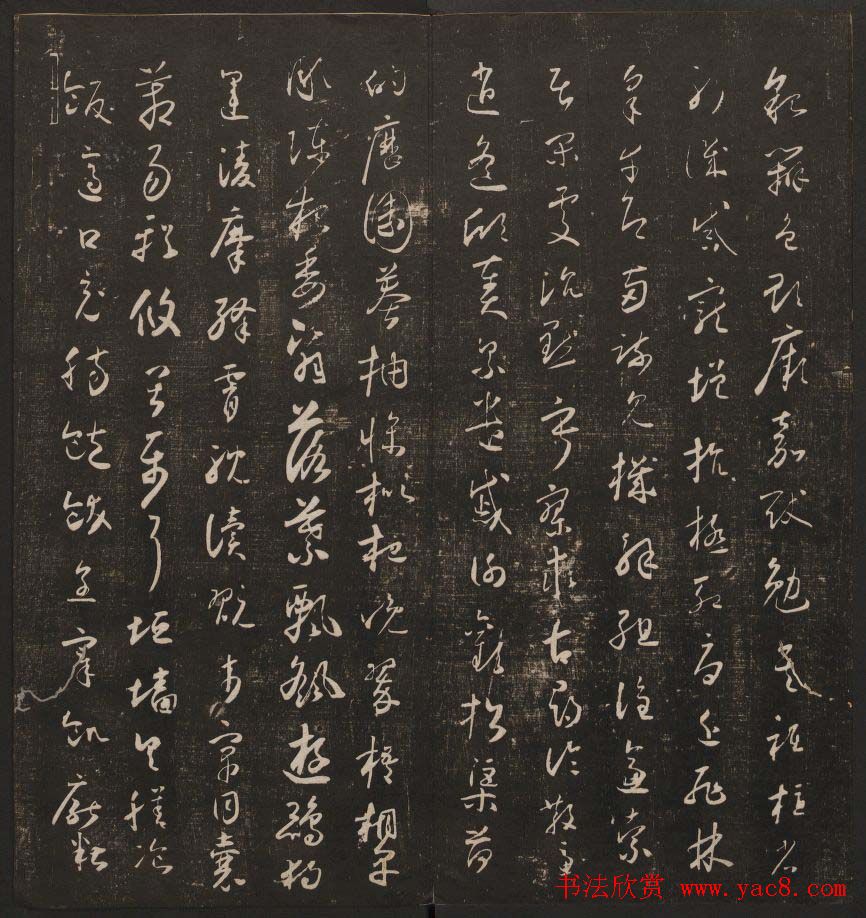 貌辨色貽厥嘉猷勉其祗植省
躬譏誡寵增抗極殆辱近恥林
皋幸即兩疏見機解組誰逼索
居閑處沉默寂寥求古尋論散慮
逍遙欣奏累遣慼謝歡招渠荷
的歷園莽抽條枇杷晚翠梧桐早
凋陳根委翳落葉飄颻遊鵾獨
運凌摩絳霄耽讀翫市寓目囊
箱易輶攸畏屬耳垣墻具膳飡
飯適口充腸飽飫烹宰飢厭糟
书法欣赏 www.yac8.com